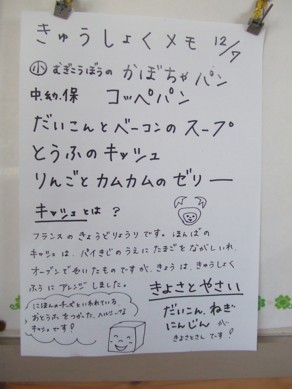 きゅうしょくメモ 12/7
小 むぎこうぼうの かぼちゃパン
中.幼.保 コッペパン
だいこんとベーコンのスープ
とうふのキッシュ
りんごとカムカムのゼリー
キッシュとは?
フランスのきょうどりょうりです。ほんばの
キッシュは、パイきじのうえにたまごをながしいれ、
オーブンでやいたものですが、きょうは、きゅうしょく
ふうにアレンジしました。
にほんのチーズといわれている
おとうふをつかった、ヘルシーな
キッシュです!
きよさとやさい
だいこん、ねぎ
にんじん が、
きよさとさん です!